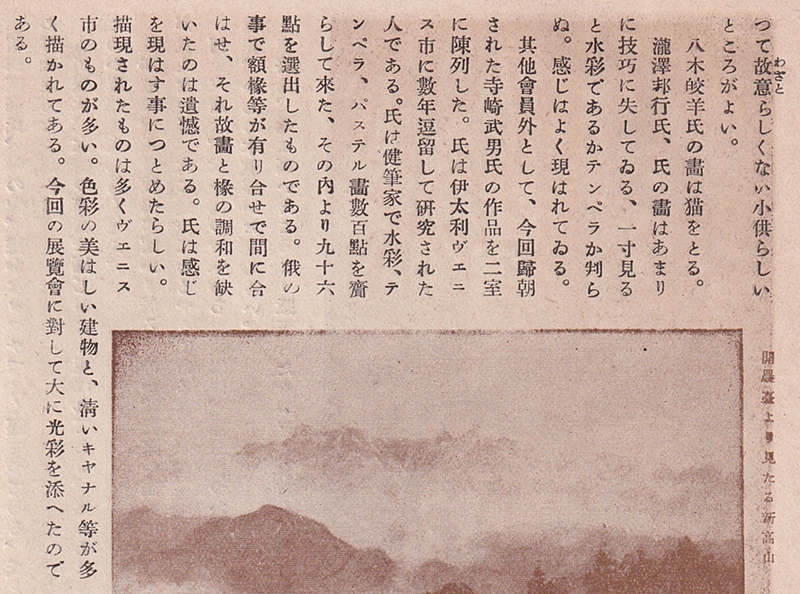 つて故意らしくない小供らしい
わざと
ところがよい。
八木皎羊氏の畫は猫をとる。
瀧澤邦行氏、氏の畫はあまり
に技巧に失してゐる、一寸見る
と水彩であるかテンペラか判ら
ぬ。感じはよく現はれてゐる。
其他會員外として、今回歸朝
された寺崎武男氏の作品を二室
に陳列した。氏は伊太利ヴェニ
ス市に數年逗留して研究された
人である。氏は健筆家で水彩、テ
ンペラ、パステル畫數百點を齎
らして來た、その内より九十六
點を選出したものである。俄の
事で額椽等が有り合せで間に合
はせ、それ故畫と椽の調和を缺
いたのは遺憾である。氏は感じ
を現はす事につとめたらしい。
描現されたものは多くヴェニス
市のものが多い。色彩の美はしい建物と、淸いキヤナル等が多
く描かれてある。今回の展覽會に對して大に光彩を添へたので
ある。
より見たる新高山